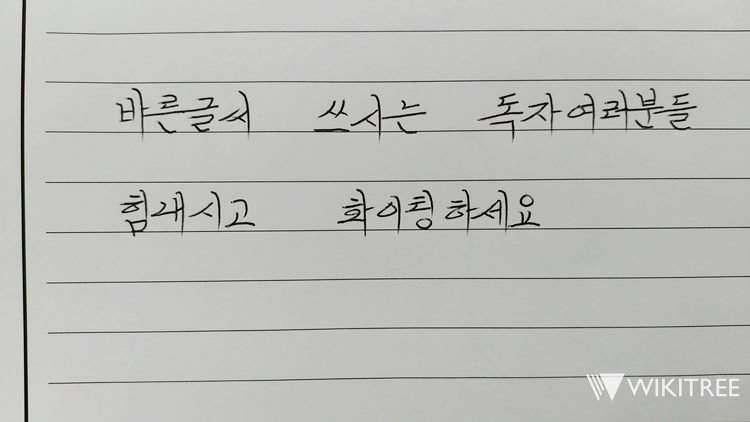 바른글씨 쓰시는 독자여러분들
힘내시고 화이팅하세요
WIKITREE